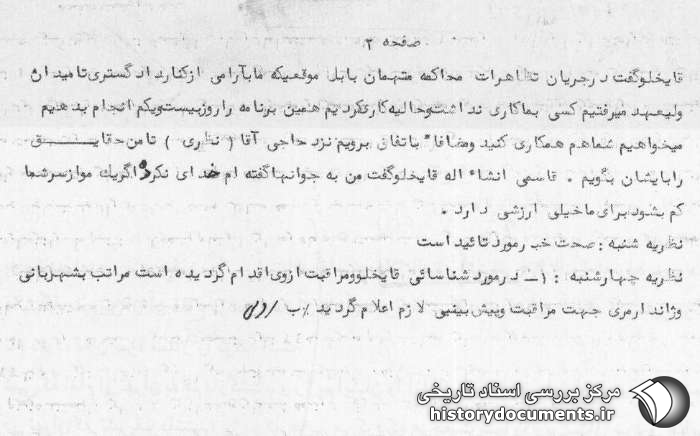 صفحه ۲
قایخلوگفت درجریان تظاهرات محاکمه متهمان بابل موقعیکه مابآرامی ازکنارداد گستری تامیدان
ولیعهد میرفتیم کسی بماکاری نداشت وحالیه کاری کردیم همین برنامه راروزبیست ویکم انجام بدهیم
میخواهیم شماهم همکاری کنید ومضافا" باتفاق برویم نزد حاجی آقا ( نظری ) تامن حقایق
رابایشان بگویم . قاسمی انشاء اله قایخلوگفت من به جوانهاگفته ام خدای نکرده اگریك موازسرشما
کم بشود برای ماخیلی ارزشی دارد .
نظریه شنبه : صحت خبر مورد تائید است
نظریه چهارشنبه : ۱ــ درمورد شناسائی قایخلوومراقبت ازوی اقدام گردیده است مراتب بشهربانی
وژاندارمری جهت مراقبت وپیش بینی لازم اعلام گردید /ب
مرکز بررسی اسناد تاریخی
historydocuments.ir